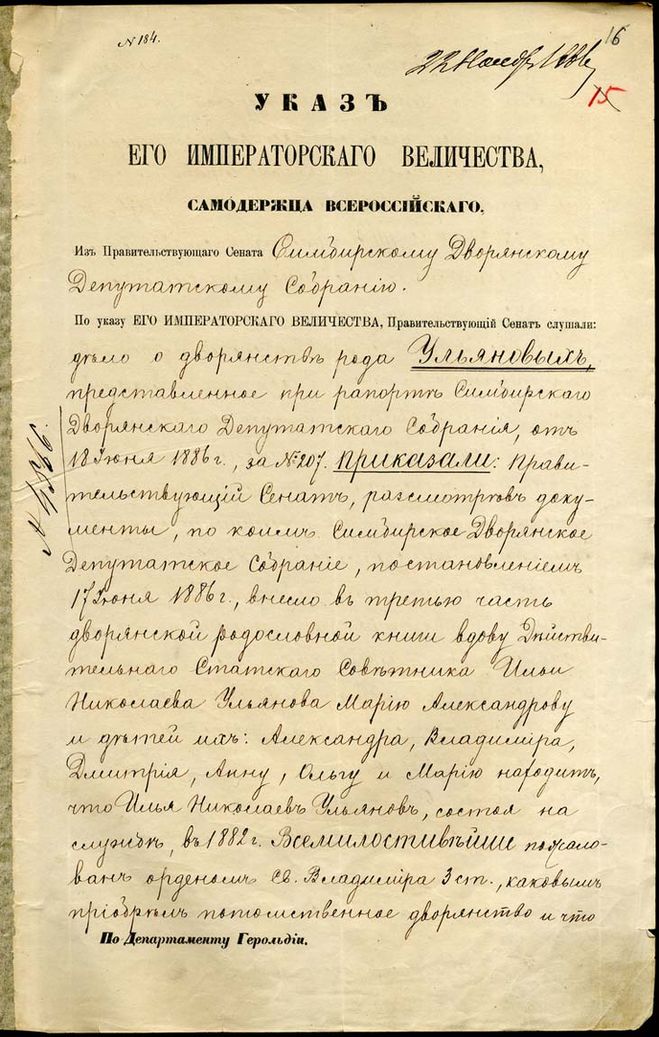 N 184.
16
22 Ноябр. 1886
15
УКАЗЪ
ЕГО ИМПЕРАТОРСКАГО ВЕЛИЧЕСТВА,
САМОДЕРЖЦА ВСЕРОССІЙСКАГО,
Изъ Правительствующаго Сената Симбирскому Дворянскому
Депутатскому Собранію.
По указу ЕГО ИМПЕРАТОРСКАГО ВЕЛИЧЕСТВА, Правительствующій Сенатъ слушали:
дѣло о дворянствѣ рода Ульяновыхъ,
представленное при рапортѣ Симбирскаго
Дворянскаго Депутатскаго Собранія, отъ
18 Іюня 1886 г., за №207. приказали: Прави-
тельствующій Сенатъ, разсмотрѣвъ доку-
менты, по коимъ Симбирское Дворянское
Депутатское Собраніе, постановленіемъ
17 Іюня 1886 г., внесло въ третью часть
дворянской родословной книги вдову Дѣйстви-
тельнаго Статскаго Совѣтника Ильи
Николаева Ульянова Марію Александрову
и дѣтей ихъ: Александра, Владиміра,
Дмитрія, Анну, Ольгу и Марію находитъ,
что Илья Николаевъ Ульяновъ, состоя на
службѣ, въ 1882 г. Всемилостивѣйше пожало-
ванъ орденомъ Св. Владиміра 3 ст., каковымъ
пріобрѣлъ потомственное дворянство и что
По Департаменту Герольдіи.